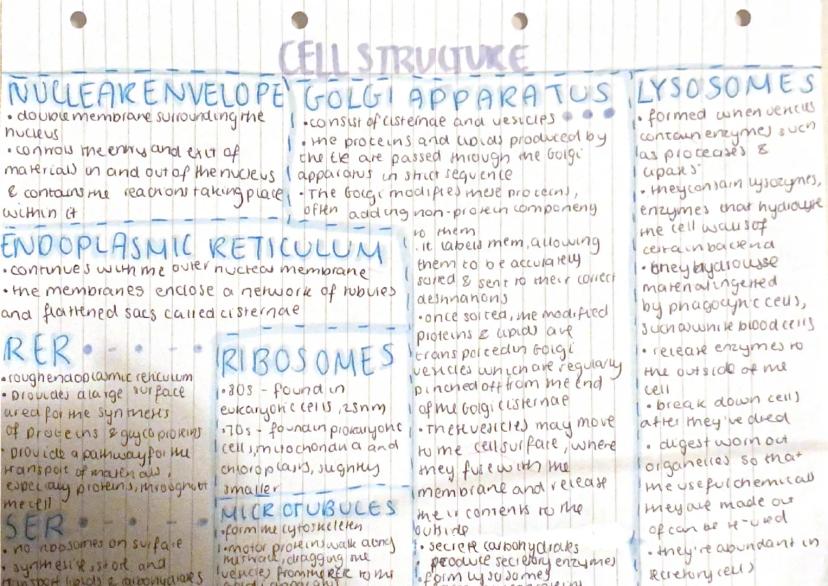 CELL STRUCTURE
NUCLEAR ENVELOPE
• double membrane surrounding the
nucleus
• controls the entry and exit of
materials in and out of the nucleus
& contains the reactions taking place
within it
ENDOPLASMIC RETICULUM
• continues with the outer nuclear membrane
• the membranes enclose a network of tubules
and flattened sacs called cisternae
RER
• rough endoplasmic reticulum
• provides a large surface
area for the synthesis
of proteins & glycoproteins
• provide a pathway for the
transport of materials,
especially proteins, throughout
the cell
SER
• no ribosomes on surface
• synthesise, store and
transport lipids & carbohydrates
RIBOSOMES
• 80s - found in
eukaryotic cells, 25nm
• 70s - found in prokaryotic
cells, mitochondria and
chloroplasts, slightly
smaller
MICROTUBULES
• form the cytoskeleton
• motor proteins walk along
dragging the
vesicles from the RER to the
GOLGI APPARATUS
• consist of cisternae and vesicles
• the proteins and lipids produced by
the are passed through the Golgi
apparatus in strict sequence
• The Golgi modifies these proteins,
often adding non-protein components
to them
• it labels them, allowing
them to be accurately
sorted & sent to their correct
destinations
• once sorted, the modified
proteins & lipids are
transported in Golgi
vesicles which are regularly
pinched off from the end
of the Golgi cisternae
• These vesicles may move
to the cell surface, where
they fuse with the
membrane and release
their contents to the
outside
• secrete carbohydrates
produce secretory enzymes
form lysosomes
LYSOSOMES
• formed when vesicles
contain enzymes such
as proteases &
lipases
• they contain lysozymes,
enzymes that hydrolyse
the cell walls of
certain bacteria
• they hydrolyse
material ingested
by phagocytic cells,
such as white blood cells
• release enzymes to
the outside of the
cell
• break down cells
after they've died
• digest worn out
organelles so that
the useful chemicals
they are made out
of can be re-used
• they're abundant in
secretory cells